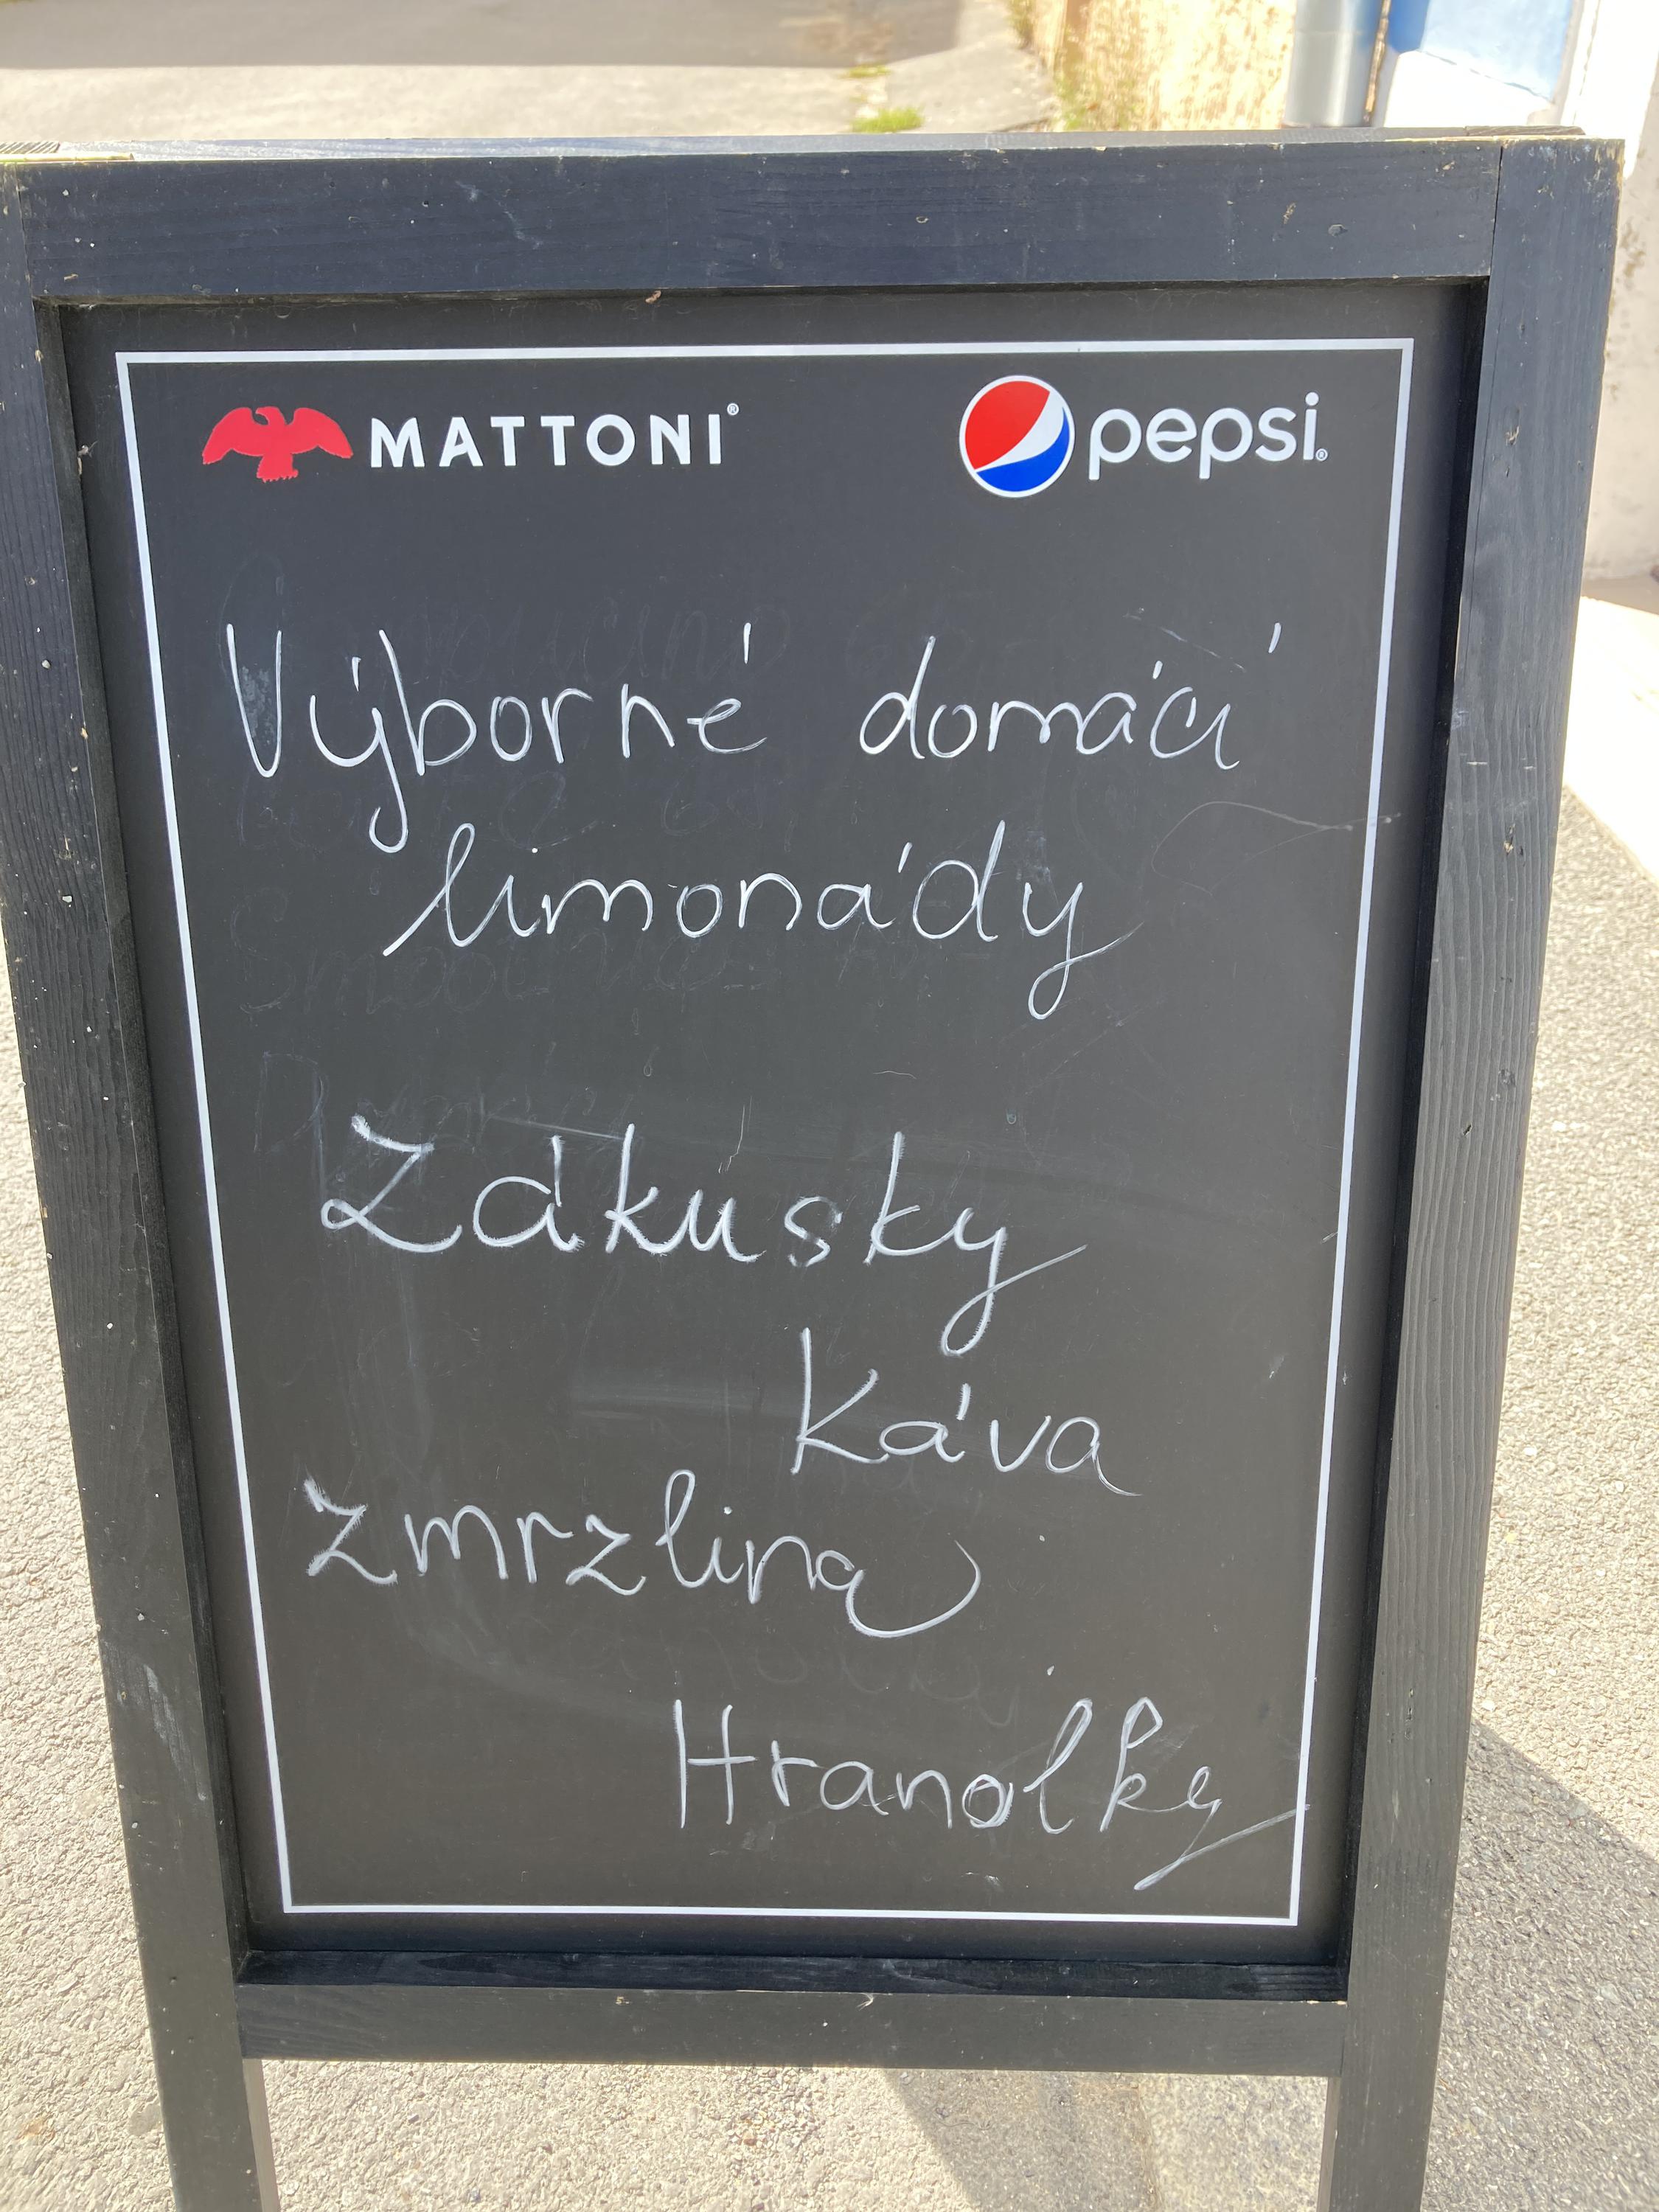 MATTONI® pepsi®
Výborné domácí
limonády
Zákusky
Káva
Zmrzlina
Hranolky